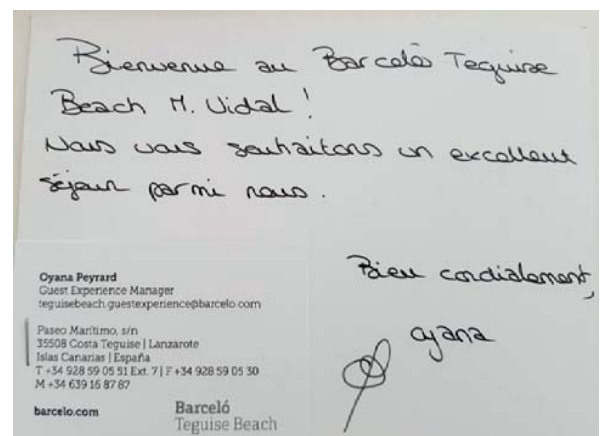 Bienvenue au Barceló Teguise
Beach M. Vidal !
Nous vous souhaitons un excellent
séjour parmi nous.
Bien cordialement,
Oyana
Oyana Peyrard
Guest Experience Manager
teguisebeach.guestexperience@barcelo.com
Paseo Marítimo, s/n
35508 Costa Teguise | Lanzarote
Islas Canarias | España
T +34 928 59 05 51 Ext. 7 | F +34 928 59 05 30
M +34 639 16 87 87
barcelo.com
Barceló
Teguise Beach